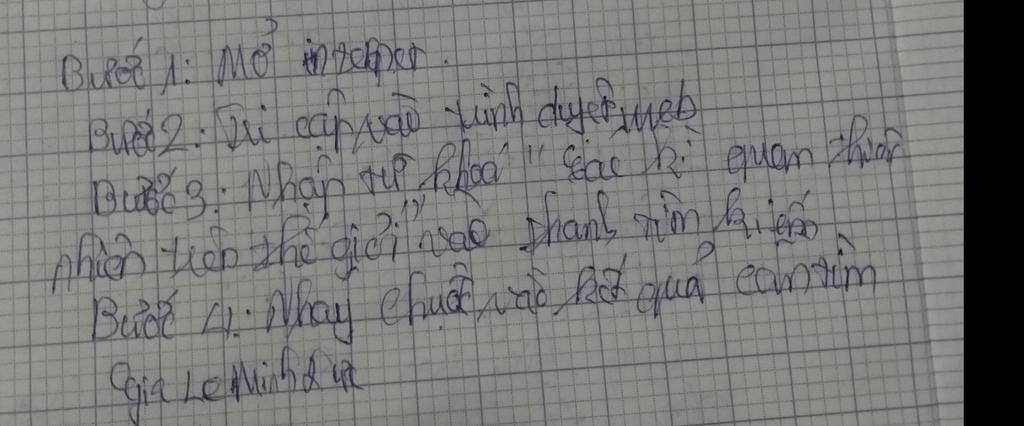 Bước 1: Mở internet.
Bước 2: Truy cập vào trình duyệt web
Bước 3: Nhập từ khoá "các kì quan thiên
nhiên trên thế giới" vào thanh tìm kiếm
Bước 4: Nháy chuột vào kết quả cần tìm
Gia Le Minh